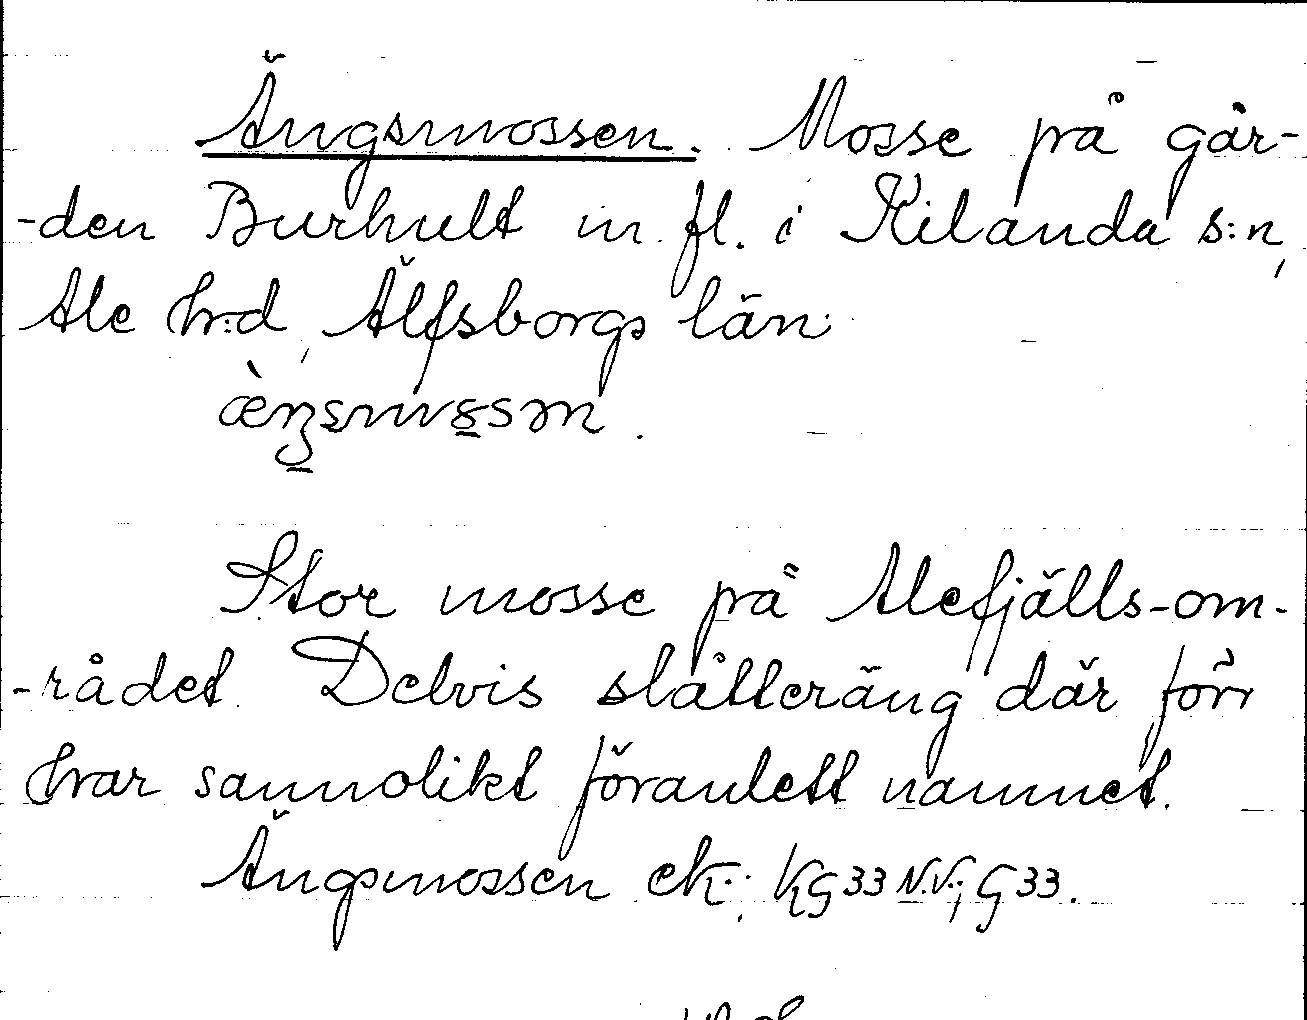 Ängsmossen. Mosse på går-
-den Burhult m. fl. i Kilanda s:n,
Ale h:d, Älfsborgs län.
Stor mosse på Alefjälls-om-
-rådet. Delvis slåtteräng där förr
har sannolikt föranlett namnet.
Ängsmossen ek.; KG33 N.V.; G33.